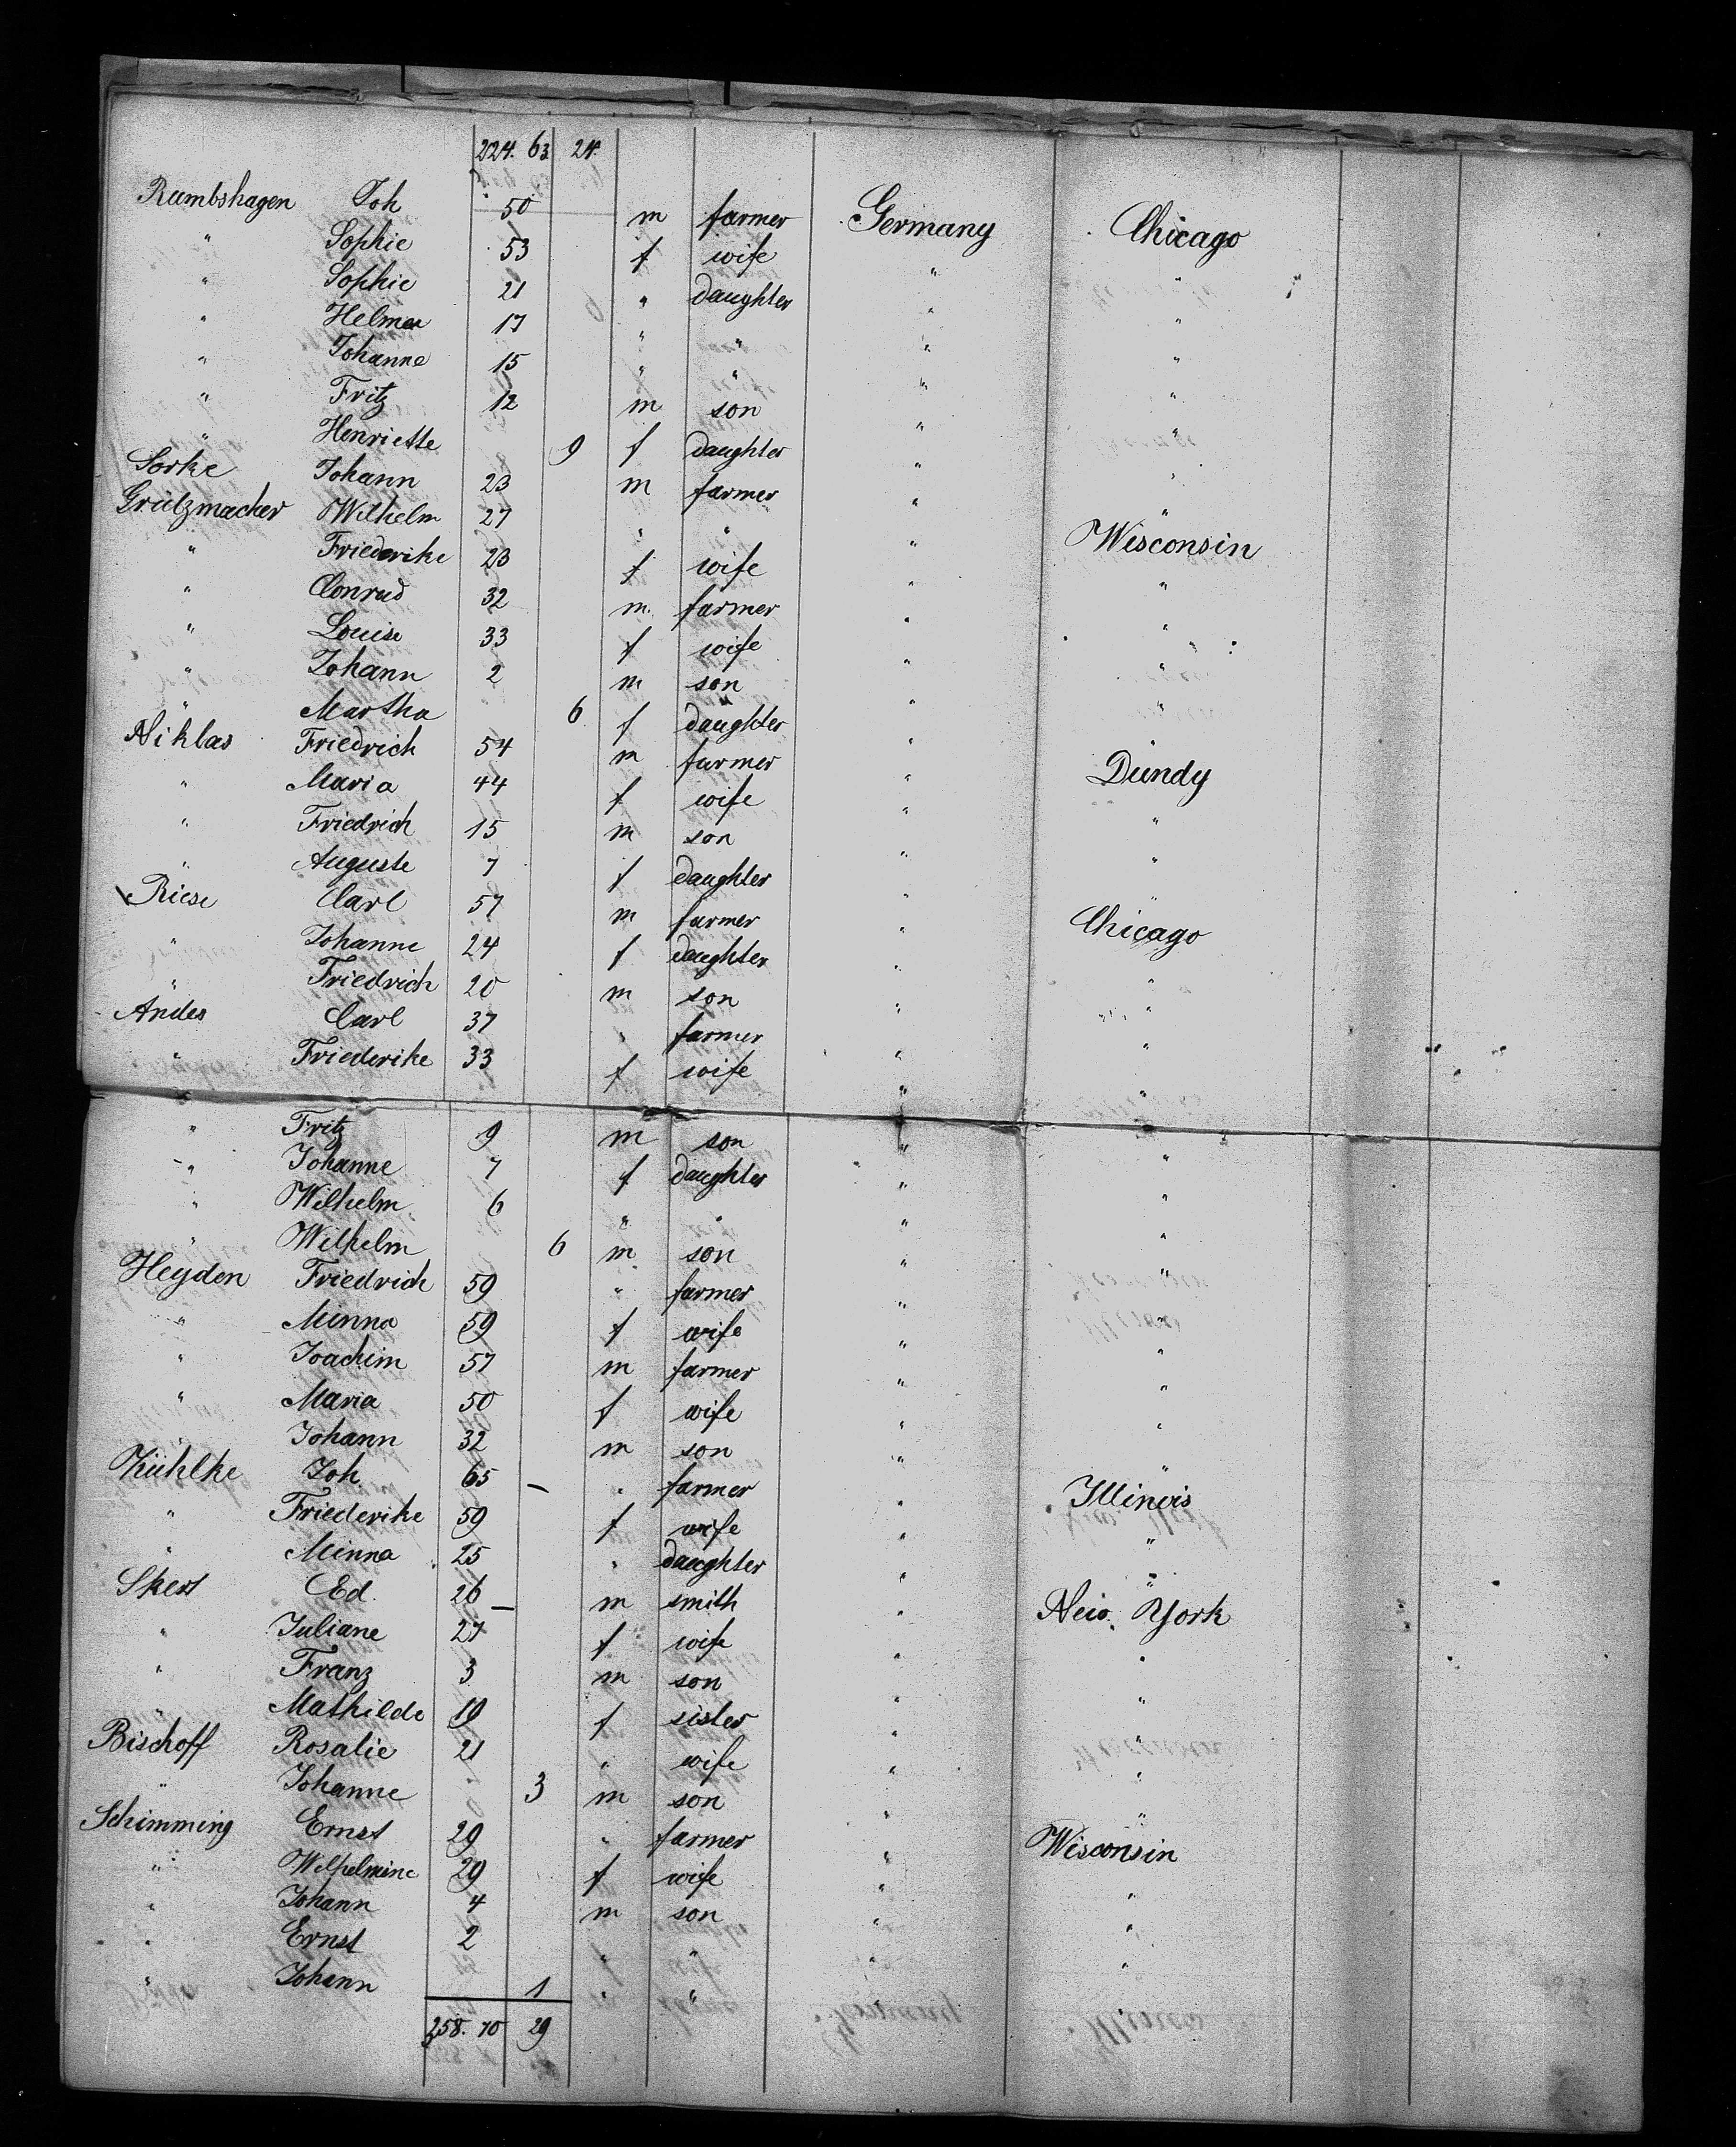 224. 63 24.
Rambshagen Joh 50 m farmer Germany Chicago
" Sophie 53 f wife " "
" Sophie 21 " daughter " "
" Helmer 17 " " " "
" Johanne 15 " " " "
" Fritz 12 m son " "
" Henriette 9 f daughter " "
Sorke Johann 23 m farmer " "
Grützmacher Wilhelm 27 " " " Wisconsin
" Friederike 23 f wife " "
" Conrad 32 m farmer " "
" Louise 33 f wife " "
" Johann 2 m son " "
" Martha 6 f daughter " "
Niklas Friedrich 54 m farmer " Dundy
" Maria 44 f wife " "
" Friedrich 15 m son " "
" Auguste 7 f daughter " "
Riese Carl 57 m farmer " Chicago
" Johanne 24 f daughter " "
" Friedrich 20 m son " "
Andes Carl 37 " farmer " "
" Friederike 33 f wife " "
" Fritz 9 m son " "
" Johanne 7 f daughter " "
" Wilhelm 6 " " " "
" Wilhelm 6 m son " "
Heyden Friedrich 59 " farmer " "
" Minna 59 f wife " "
" Joachim 57 m farmer " "
" Maria 50 f wife " "
" Johann 32 m son " "
Kühlke Joh 65 " farmer " Illinois
" Friederike 59 f wife " "
" Minna 25 " daughter " "
Ed. 26 m smith " New York
" Juliane 27 f wife " "
" Franz 3 m son " "
" Mathilde 19 f sister " "
Bischoff Rosalie 21 " wife " "
" Johanne 3 m son " "
Schimming Ernst 29 " farmer " Wisconsin
" Wilhelmine 29 f wife " "
" Johann 4 m son " "
" Ernst 2 " " " "
" Johann 1 " " "
258. 70 29